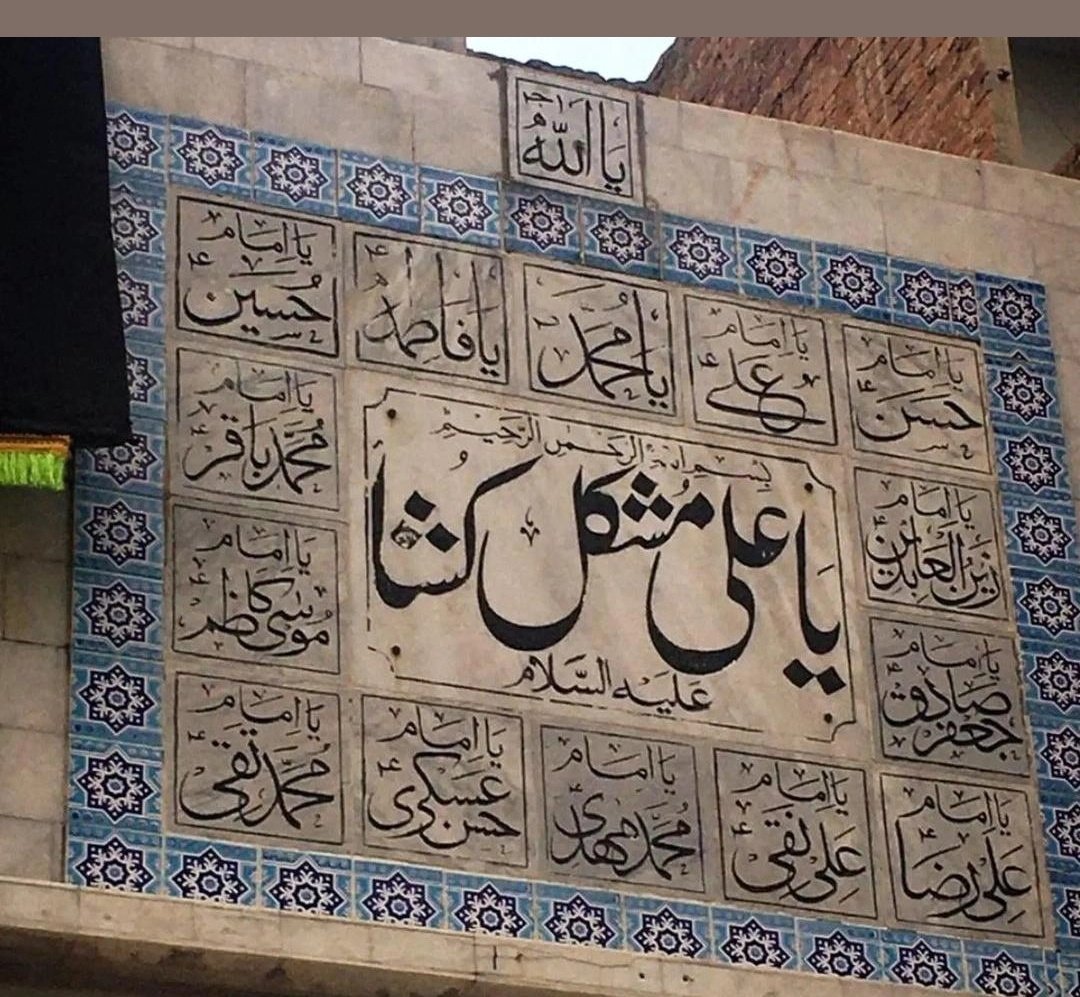 یا اللہ
یا امام حسن
یا امام علی
یا محمد
یا فاطمہ
یا امام حسین
بسم اللہ الرحمن الرحیم
یا علی مشکل کشا
علیہ السلام
یا امام زین العابدین
یا امام محمد باقر
یا امام جعفر صادق
یا امام موسی کاظم
یا امام علی رضا
یا امام علی نقی
یا امام محمد مہدی
یا امام حسن عسکری
یا امام محمد تقی